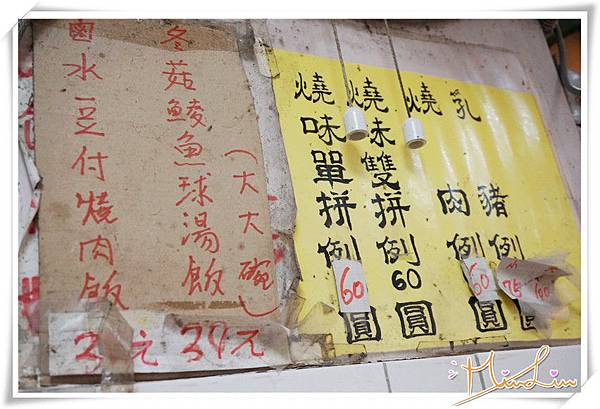 冬菇鯪魚球湯飯
（大大碗）
39元
鹵水豆付燒肉飯
3 元
乳豬例
圓
燒肉例
60
圓
燒味雙拼例
60
圓
燒味單拼例
60
圓